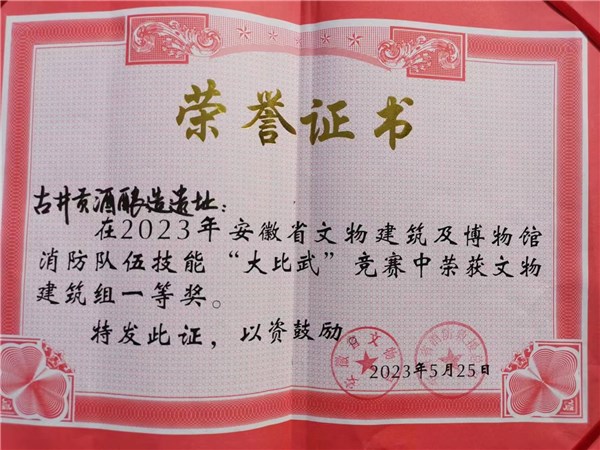 荣誉证书
古井贡酒酿造遗址：
在2023年安徽省文物建筑及博物馆
消防队伍技能“大比武”竞赛中荣获文物
建筑组一等奖。
特发此证，以资鼓励
安徽省文物局
2023年5月25日